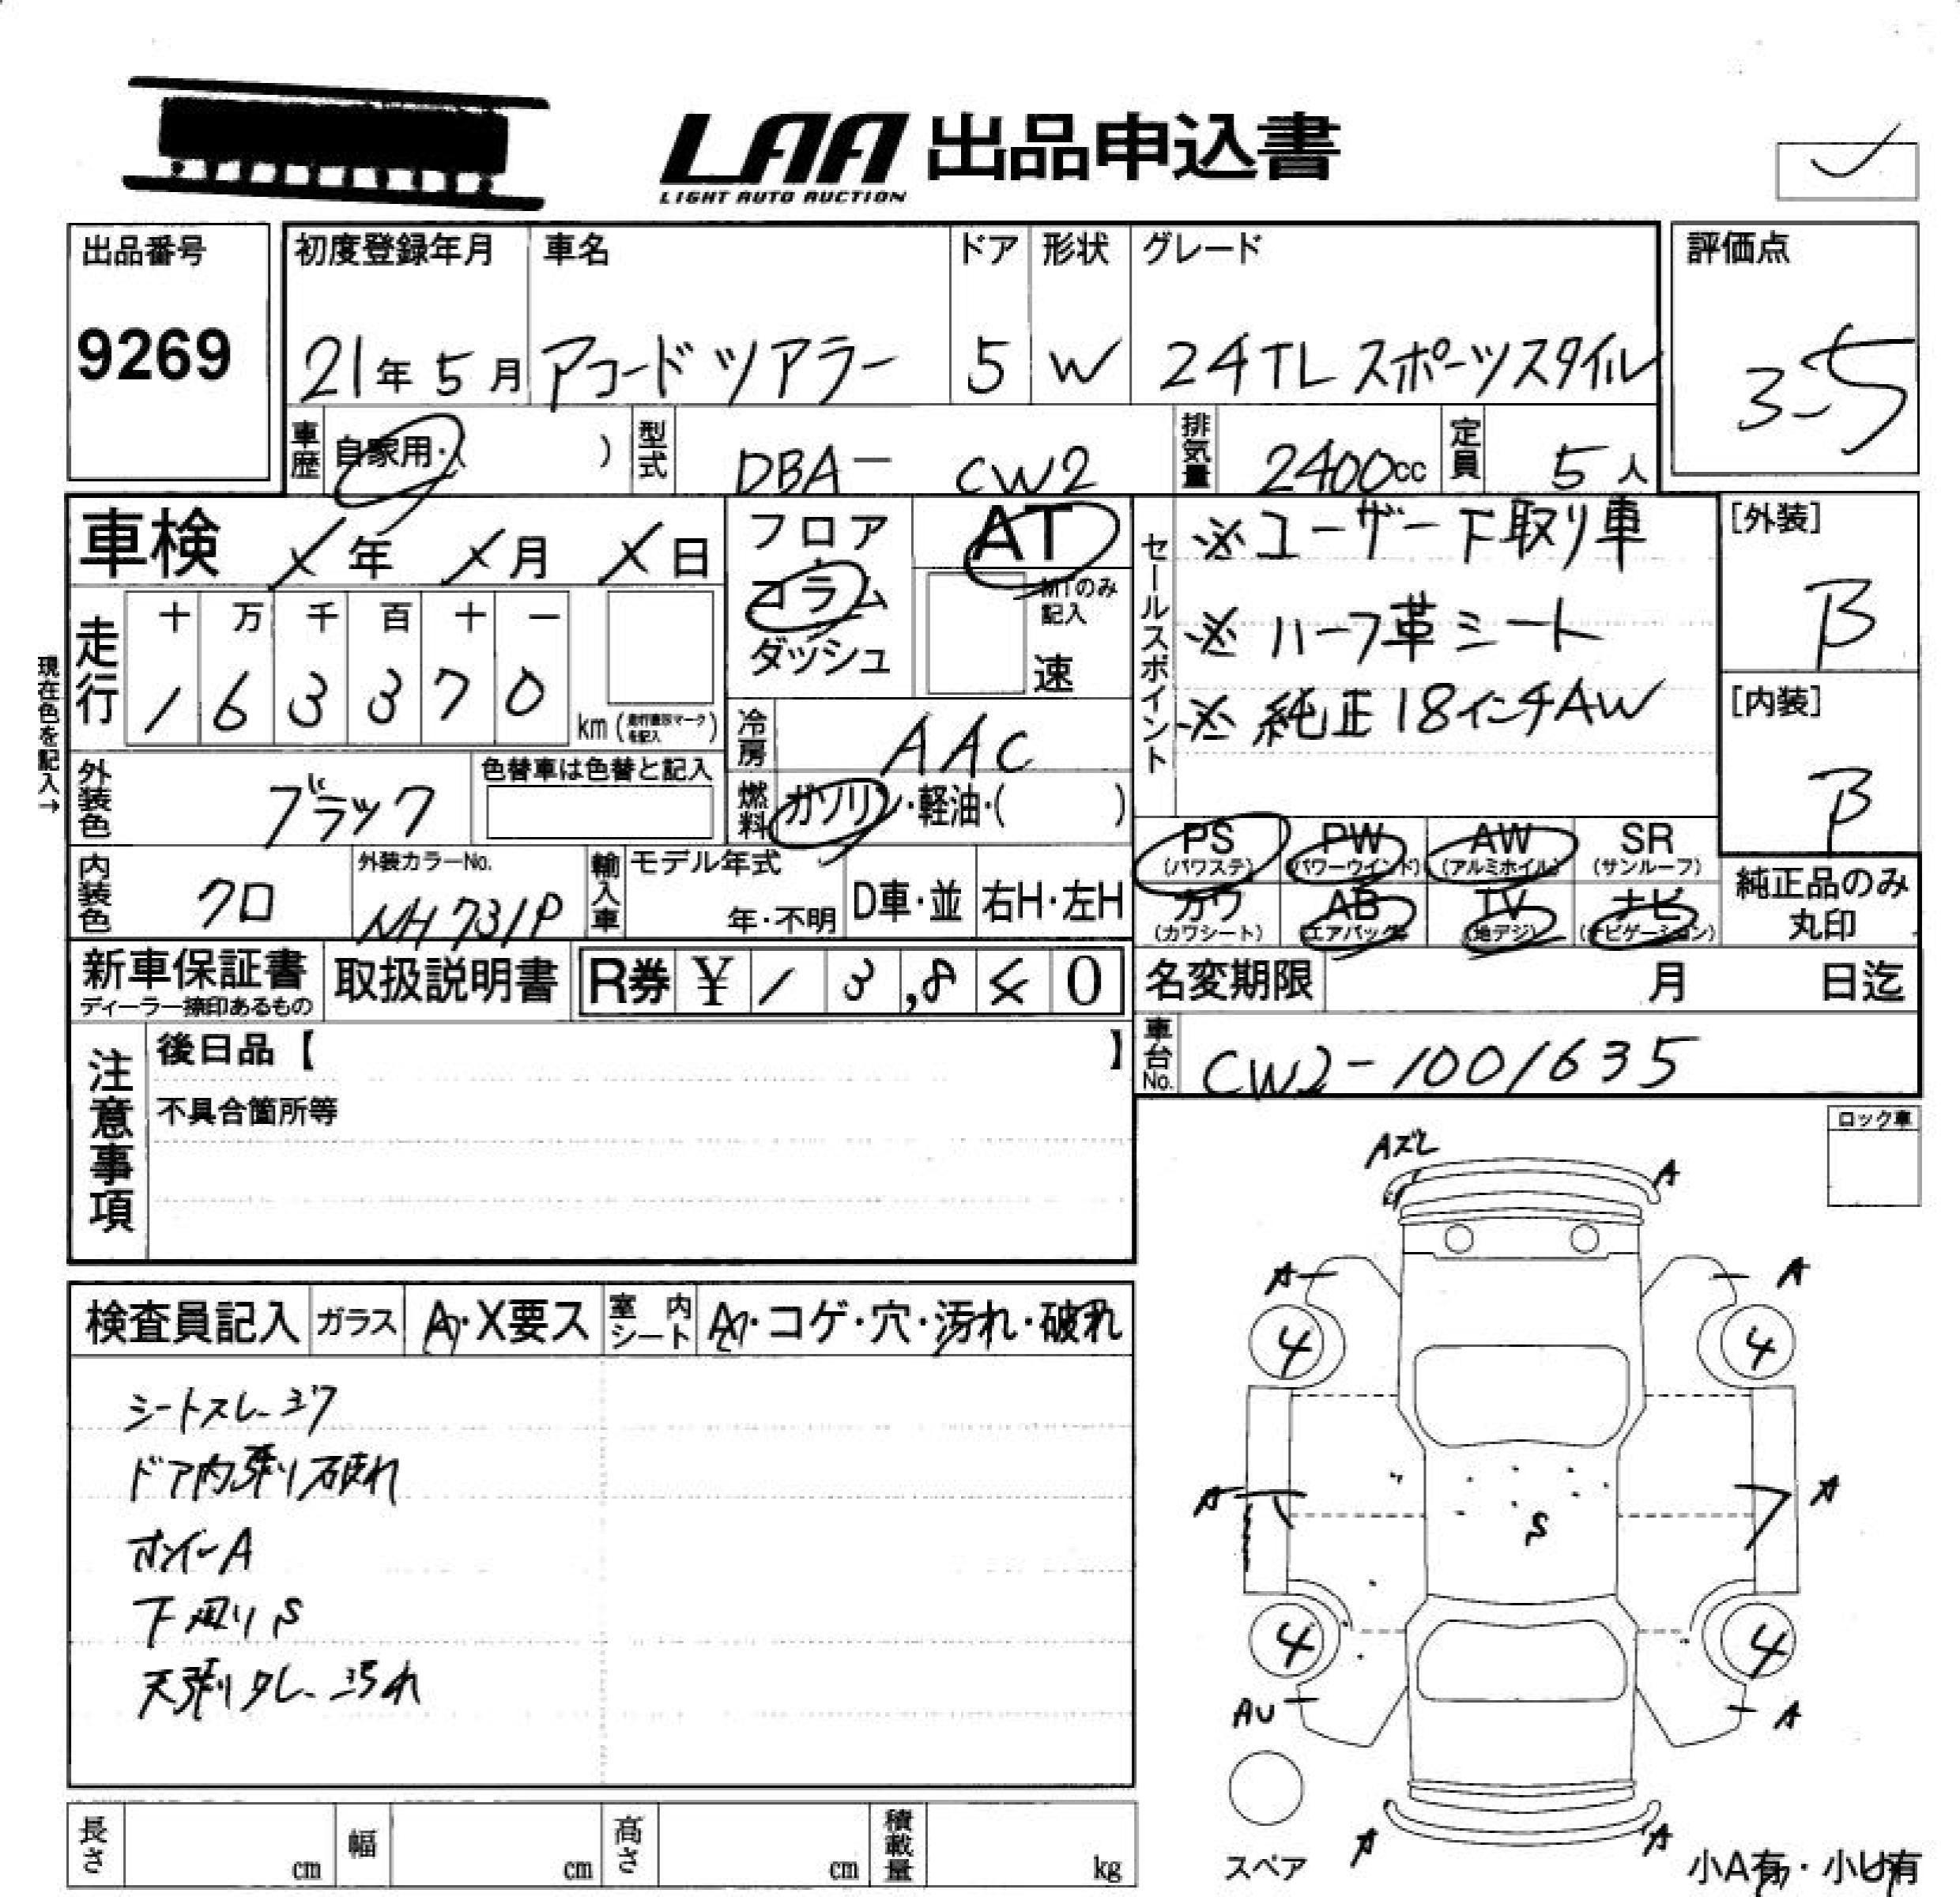 LAA 出品申込書
LIGHT AUTO AUCTION
出品番号
9269
初度登録年月
21年5月
車名
アコードツアラー
ドア
5
形状
W
グレード
24TLスポーツスタイル
評価点
3.5
車歴
自家用・( )
型式
DBA- CW2
排気量
2400cc
定員
5人
車検 X年 X月 X日
フロア
コラム
ダッシュ
AT
MTのみ記入
速
セールスポイント
※ユーザー下取り車
※ハーフ革シート
※純正18インチAW
[外装]
B
[内装]
B
現在色を記入→
走行
十 万 千 百 十 一
1 6 3 3 7 0
km(走行表示マークを記入)
冷房
AAC
外装色
ブラック
色替車は色替と記入
燃料
ガソリン・軽油・( )
内装色
クロ
外装カラーNo.
NH731P
輸入車
モデル年式
年・不明
D車・並
右H・左H
PS
(パワステ)
PW
(パワーウインド)
AW
(アルミホイル)
SR
(サンルーフ)
カワ
(カワシート)
AB
(エアバック)
TV
(地デジ)
ナビ
(ナビゲーション)
純正品のみ
丸印
新車保証書
ディーラー捺印あるもの
取扱説明書
R券 ¥ 1 3,8 0
名変期限 月 日迄
車台No.
CW2-1001635
注意事項
後日品【 】
不具合箇所等
ロック車
検査員記入
ガラス
A・X要ス
室内シート
A・コゲ・穴・汚れ・破れ
シートスレ
ドア内張り破れ
ホイールA
下廻りS
天張り少し汚れ
Aズレ
A
A
A
4
4
A
A
S
4
4
AU
A
A
A
スペア
小A有・小U有
長さ cm
幅 cm
高さ cm
積載量 kg